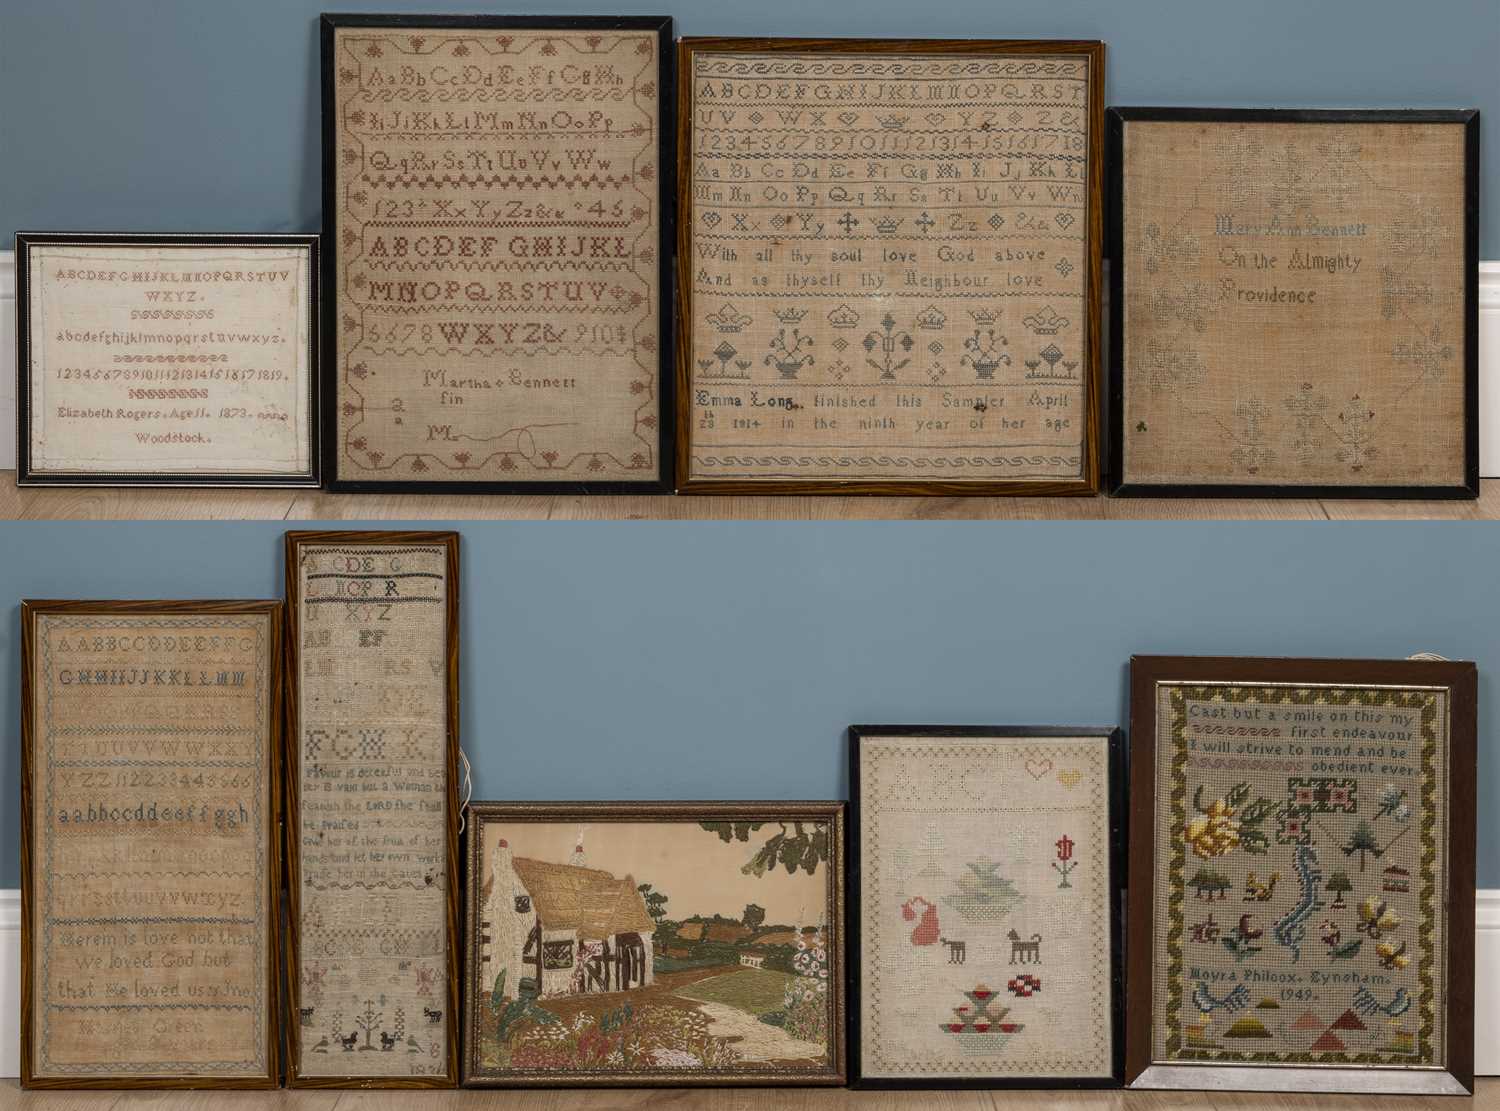 ABCDEFGHIJKLMNOPQRSTUV
WXYZ.
abcdefghijklmnopqrstuvwxyz.
12345678910111213141516171819.
Elizabeth Rogers. Age 11. 1873.
Woodstock.
AaBbCcDdEeFfGgHh
IiJjKkLlMmNnOoPp
QqRrSsTtUuVvWw
123 XxYyZz& 46
ABCDEFGHIJKL
MNOPQRSTUV
5678 WXYZ& 910
Martha Bennett
fin
a
a
M
ABCDEFGHIJKLMNOPQRST
UV WX YZ Z &
123456789101112131415161718
Aa Bb Cc Dd Ee Ff Gg Hh Ii Jj Kk Ll
Mm Nn Oo Pp Qq Rr Ss Tt Uu Vv Ww
Xx Yy Zz &
With all thy soul love God above
And as thyself thy Neighbour love
Emma Long finished this Sampler April
28th 1914 in the ninth year of her age
Mary Ann Bennett
On the Almighty
Providence
AABBCCDDEEFFG
GHHIIJJKKLLMM
TTUUVVWWXXY
YZZ 112233445566
aabbccddeeffggh
qrrssttuuvvwxyz
Herein is love not that
we loved God but
that He loved us
Green
A CDE G
NOP R
U XYZ
AB EF
RS V
FGH
Favour is deceitful and
vain but a Woman
the LORD she shall
be praised
her of the fruit of her
hands and let her own works
praise her in the Gates
ABC
Cast but a smile on this my
first endeavour
I will strive to mend and be
obedient ever.
Moyra Philcox. Eynsham.
1949.